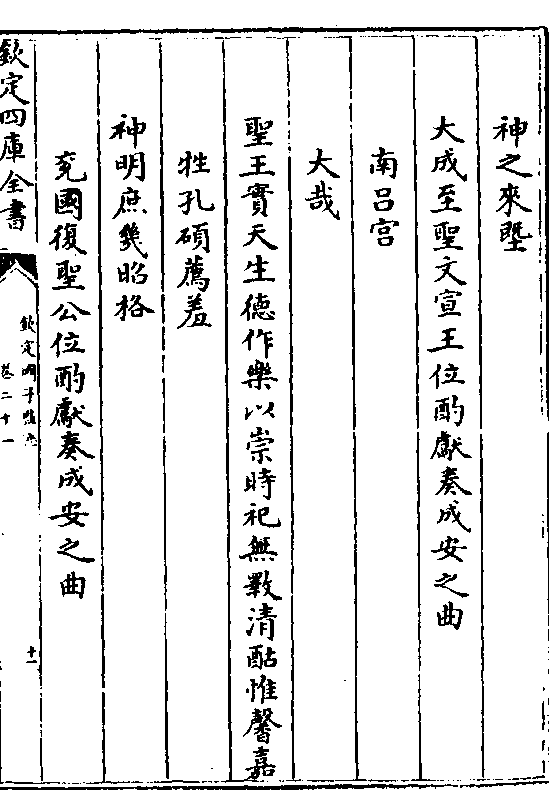 神之來塈
大成至聖文宣王位酌獻奏成安之曲
南呂宮
大哉
聖王實天生德作樂以崇時祀無斁清酤惟馨嘉
牲孔碩薦羞
神明庶幾昭格
兗國復聖公位酌獻奏成安之曲
欽定四庫全書
欽定國子監志
卷二十一
十一